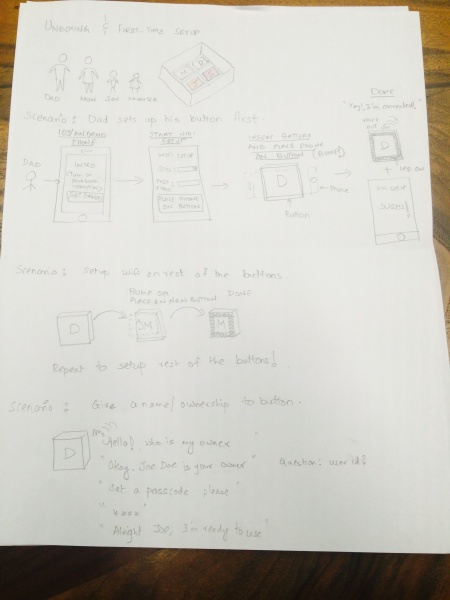 UNBOXING & FIRST-TIME SETUP
DAD MOM JIM
Scenario: Dad sets up his button first.
IOS/ANDROID PHONE
DAD
INTRO
START WIFI SETUP
WIFI SETUP
PLACE PHONE ON BUTTON
INSERT BATTERY AND PLACE PHONE ON BUTTON (BUMP)
D
Phone
Button
DONE
"Yay! I'm connected"
D
+ LED ON
SUCCESS!
Scenario: Setup wifi on rest of the buttons.
BUMP OR PLACE ON NEW BUTTON
DONE
D
M
M
Repeat to setup rest of the buttons!
Scenario: Give a name/ownership to button.
D
"Hello! who is my owner"
"Okay. Joe Doe is your owner" Question: user id?
"Set a passcode please"
"****"
"Alright Joe, I'm ready to use"